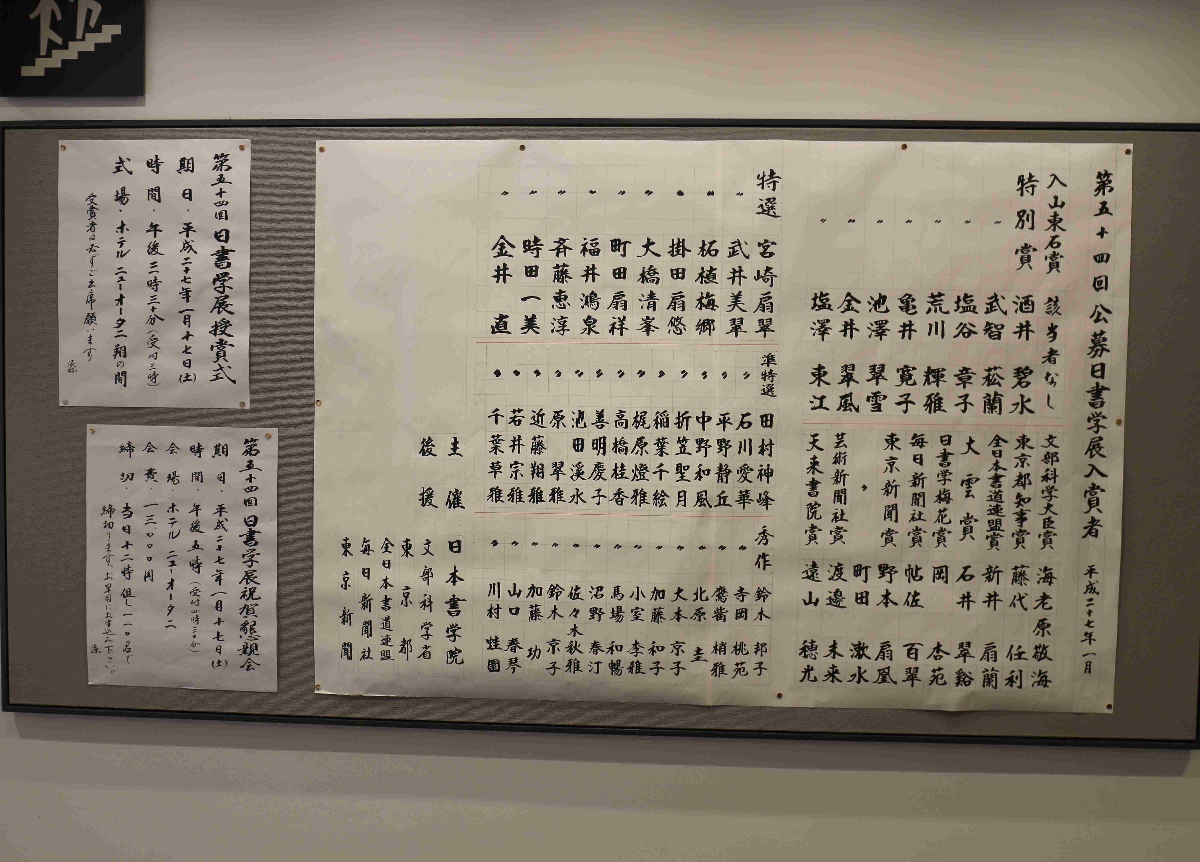 第五十四回 公募日書学展入賞者 平成二十七年一月
入山東石賞 該当者なし
特別賞 酒井 碧水
〃 武智 菘蘭
〃 塩谷 章子
〃 荒川 輝雅
〃 亀井 寛子
〃 池澤 翠雪
〃 金井 翠風
〃 塩澤 東江
文部科学大臣賞 海老原敬海
東京都知事賞 藤代 任利
全日本書道連盟賞 新井 扇蘭
大雲賞 石井 翠谿
日書学梅花賞 岡 杏苑
毎日新聞社賞 帖佐 百翠
東京新聞賞 野本 扇凰
〃 町田 漱水
芸術新聞社賞 渡邉 未来
天来書院賞 遠山 穂光
特選 宮崎扇翠
〃 武井美翠
〃 柘植梅郷
〃 掛田扇悠
〃 大橋清峯
〃 町田扇祥
〃 福井鴻泉
〃 斉藤恵淳
〃 時田一美
〃 金井 直
準特選 田村神峰
〃 石川愛華
〃 平野静丘
〃 中野和風
〃 折笠聖月
〃 稲葉千絵
〃 梶原燈雅
〃 高橋桂香
〃 善明慶子
〃 池田溪水
〃 原 翠雅
〃 近藤翔雅
〃 若井宗雅
〃 千葉草雅
秀作 鈴木 邦子
〃 寺岡 桃苑
〃 梢雅
〃 北原 圭
〃 大本 京子
〃 加藤 和子
〃 小室 李雅
〃 馬場 和暢
〃 沼野 春汀
〃 佐々木秋雅
〃 鈴木 京子
〃 加藤 功
〃 山口 春琴
〃 川村 蛙園
主催 日本書学院
後援 文部科学省
東京都
全日本書道連盟
毎日新聞社
東京新聞
第五十四回 日書学展授賞式
期日・平成二十七年一月十七日(土)
時間・午後三時三十分(受付三時
式場・ホテルニューオータニ 翔の間
受賞者は必ずご出席願います
第五十四回 日書学展祝賀懇親会
期日・平成二十七年一月十七日(土)
時間・午後五時(受付四時三十分)
会場・ホテルニューオータニ
会費・一三、〇〇〇円
締切・当日十二時 但し一一〇名で
締切ります。お早目にお申込み下さい。